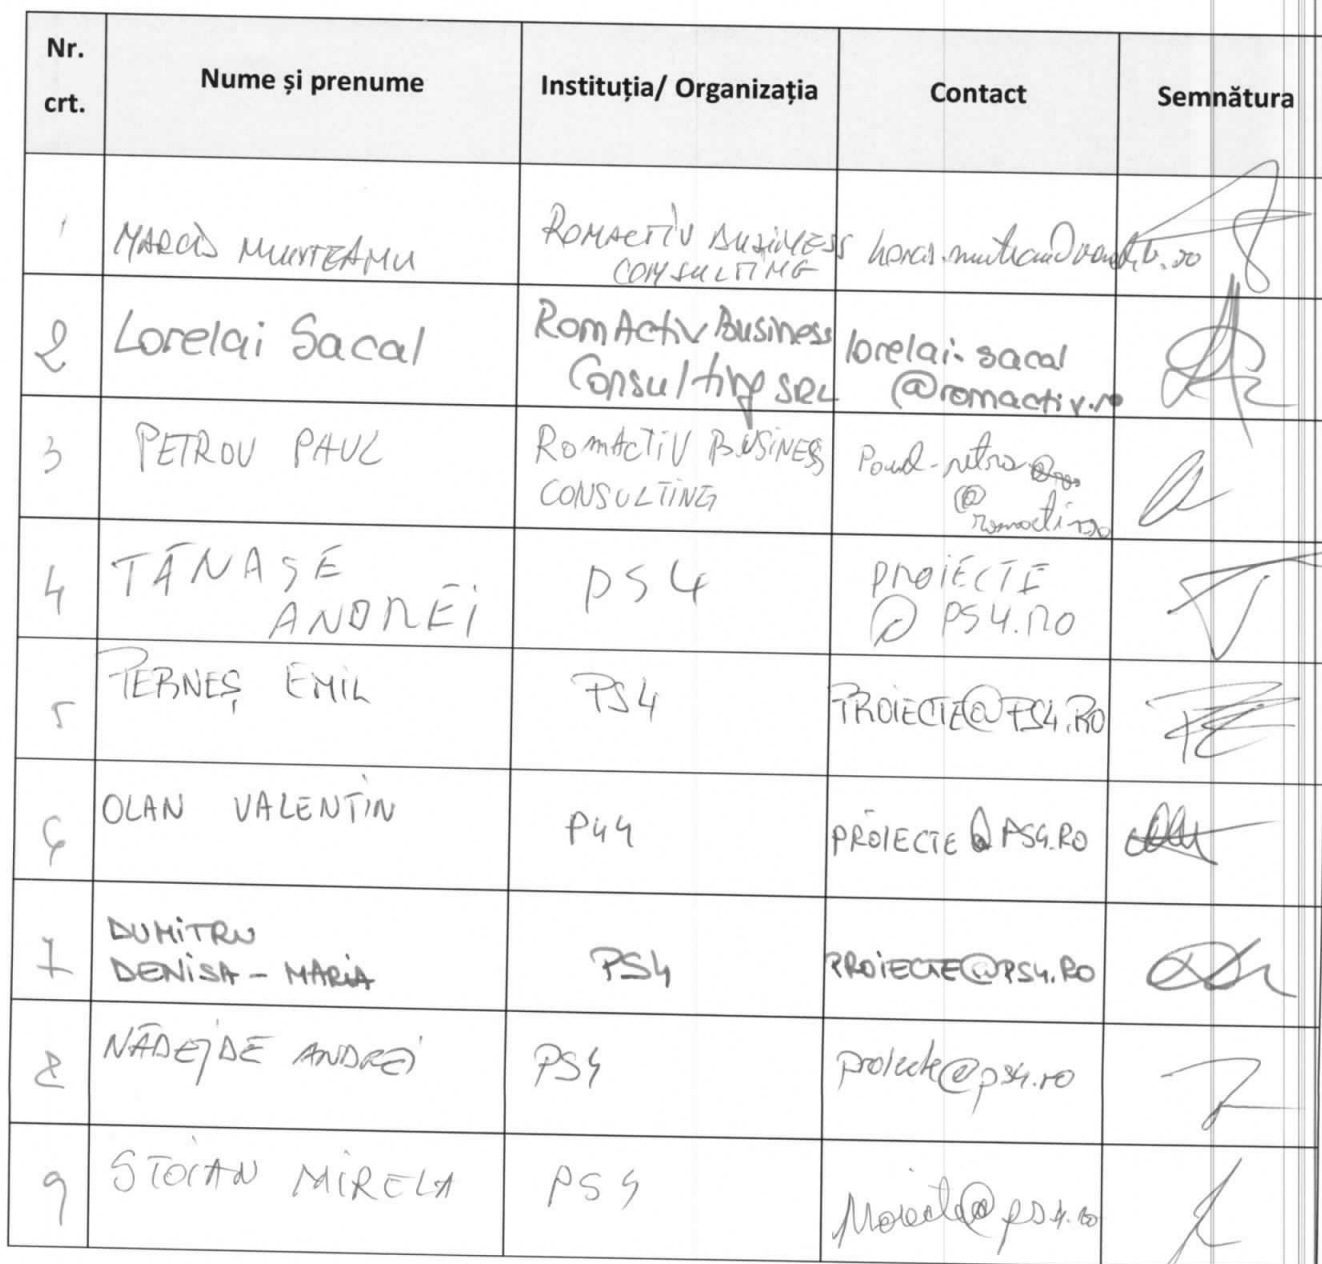 Nr. crt. Nume și prenume Instituția/ Organizația Contact Semnătura
1 MUNTEANU ROMACTIV BUSINESS CONSULTING
2 Lorelai Sacal RomActiv Business Consulting SRL lorelai.sacal @romactiv.ro
3 PETROV PAUL ROMACTIV BUSINESS CONSULTING
4 TĂNASE ANDREI PS4 PROIECTE @ PS4.RO
5 TERNEȘ EMIL PS4 PROIECTE@PS4.RO
6 OLAN VALENTIN P44 PROIECTE @ PS4.RO
7 DUMITRU DENISA - MARIA PS4 PROIECTE@PS4.RO
8 NĂDEJDE ANDREI PS4 proiecte@ps4.ro
9 STOIAN MIRELA PS4 proiecte@ps4.ro